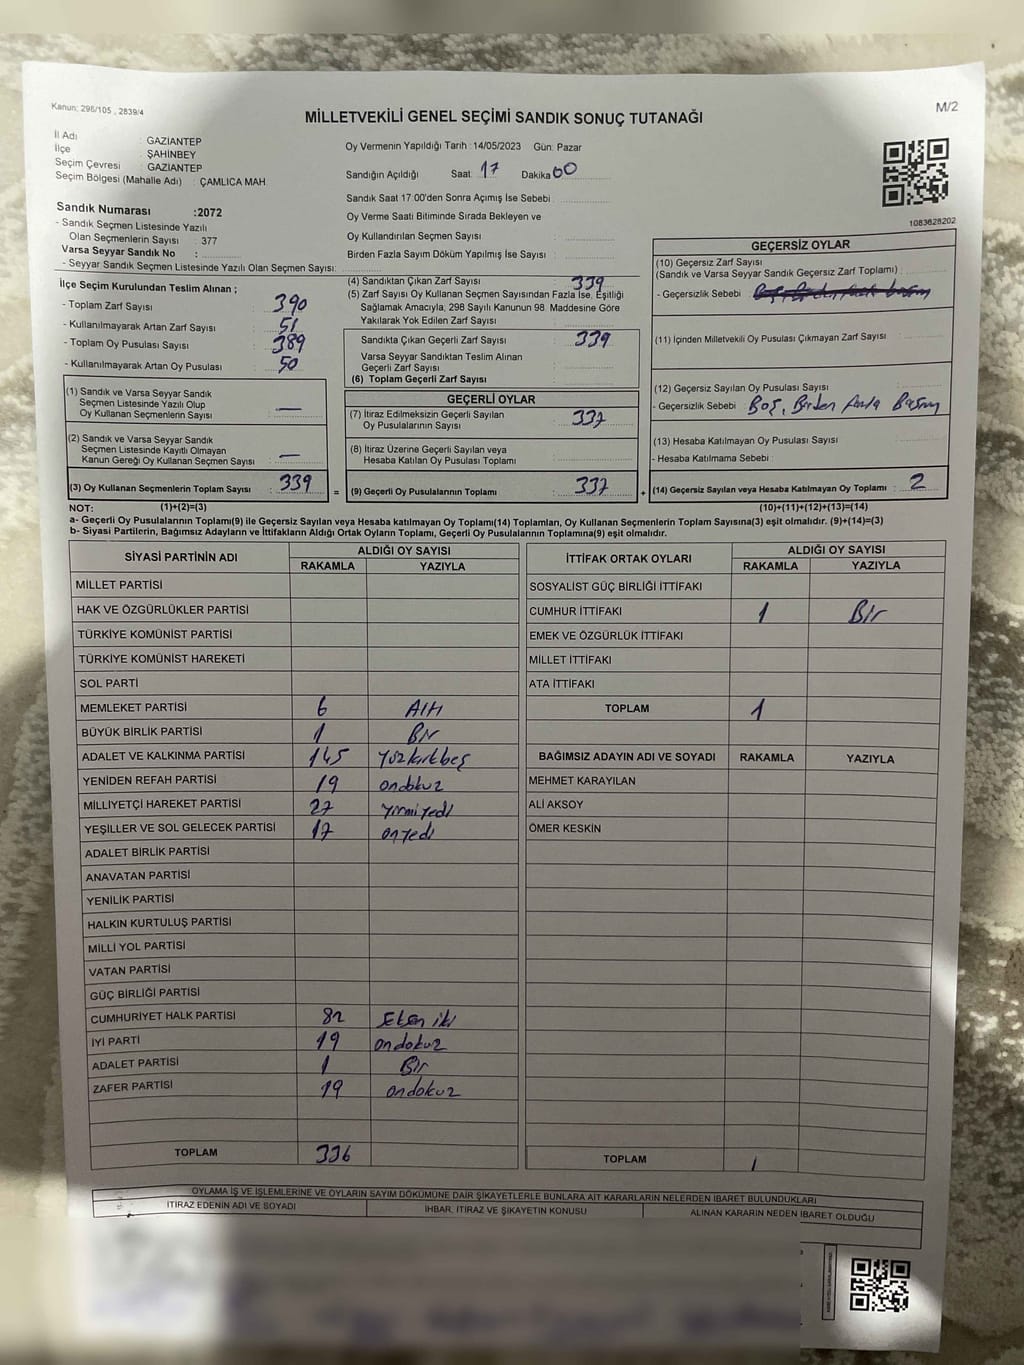 Kanun: 298/105 , 2839/4
M/2
MİLLETVEKİLİ GENEL SEÇİMİ SANDIK SONUÇ TUTANAĞI
İl Adı : GAZİANTEP
İlçe : ŞAHİNBEY
Seçim Çevresi : GAZİANTEP
Seçim Bölgesi (Mahalle Adı) : ÇAMLICA MAH.
Sandık Numarası :2072
- Sandık Seçmen Listesinde Yazılı
Olan Seçmenlerin Sayısı : 377
Varsa Seyyar Sandık No :
- Seyyar Sandık Seçmen Listesinde Yazılı Olan Seçmen Sayısı:
Oy Vermenin Yapıldığı Tarih : 14/05/2023 Gün: Pazar
Sandığın Açıldığı Saat: 17 Dakika 00
Sandık Saat 17.00'den Sonra Açımış İse Sebebi :
Oy Verme Saati Bitiminde Sırada Bekleyen ve
Oy Kullandırılan Seçmen Sayısı :
Birden Fazla Sayım Döküm Yapılmış İse Sayısı :
1083628202
İlçe Seçim Kurulundan Teslim Alınan ;
- Toplam Zarf Sayısı : 390
- Kullanılmayarak Artan Zarf Sayısı : 51
- Toplam Oy Pusulası Sayısı : 389
- Kullanılmayarak Artan Oy Pusulası : 50
(1) Sandık ve Varsa Seyyar Sandık
Seçmen Listesinde Yazılı Olup
Oy Kullanan Seçmenlerin Sayısı : —
(2) Sandık ve Varsa Seyyar Sandık
Seçmen Listesinde Kayıtlı Olmayan
Kanun Gereği Oy Kullanan Seçmen Sayısı : —
(3) Oy Kullanan Seçmenlerin Toplam Sayısı : 339
(4) Sandıktan Çıkan Zarf Sayısı : 339
(5) Zarf Sayısı Oy Kullanan Seçmen Sayısından Fazla İse, Eşitliği
Sağlamak Amacıyla; 298 Sayılı Kanunun 98. Maddesine Göre
Yakılarak Yok Edilen Zarf Sayısı :
Sandıkta Çıkan Geçerli Zarf Sayısı : 339
Varsa Seyyar Sandıktan Teslim Alınan
Geçerli Zarf Sayısı :
(6) Toplam Geçerli Zarf Sayısı :
GEÇERLİ OYLAR
(7) İtiraz Edilmeksizin Geçerli Sayılan
Oy Pusulalarının Sayısı : 337
(8) İtiraz Üzerine Geçerli Sayılan veya
Hesaba Katılan Oy Pusulası Toplamı :
= (9) Geçerli Oy Pusulalarının Toplamı : 337
GEÇERSİZ OYLAR
(10) Geçersiz Zarf Sayısı
(Sandık ve Varsa Seyyar Sandık Geçersiz Zarf Toplamı) :
- Geçersizlik Sebebi :
(11) İçinden Milletvekili Oy Pusulası Çıkmayan Zarf Sayısı :
(12) Geçersiz Sayılan Oy Pusulası Sayısı :
- Geçersizlik Sebebi : Boş, Birden Fazla Basım
(13) Hesaba Katılmayan Oy Pusulası Sayısı :
- Hesaba Katılmama Sebebi :
+ (14) Geçersiz Sayılan veya Hesaba Katılmayan Oy Toplamı : 2
NOT: (1)+(2)=(3) (10)+(11)+(12)+(13)=(14)
a- Geçerli Oy Pusulalarının Toplamı(9) ile Geçersiz Sayılan veya Hesaba katılmayan Oy Toplamı(14) Toplamları, Oy Kullanan Seçmenlerin Toplam Sayısına(3) eşit olmalıdır. (9)+(14)=(3)
b- Siyasi Partilerin, Bağımsız Adayların ve İttifakların Aldığı Ortak Oyların Toplamı, Geçerli Oy Pusulalarının Toplamına(9) eşit olmalıdır.
SİYASİ PARTİNİN ADI ALDIĞI OY SAYISI
RAKAMLA YAZIYLA
MİLLET PARTİSİ
HAK VE ÖZGÜRLÜKLER PARTİSİ
TÜRKİYE KOMÜNİST PARTİSİ
TÜRKİYE KOMÜNİST HAREKETİ
SOL PARTİ
MEMLEKET PARTİSİ 6 Altı
BÜYÜK BİRLİK PARTİSİ 1 Bir
ADALET VE KALKINMA PARTİSİ 145 Yüzkırkbeş
YENİDEN REFAH PARTİSİ 19 ondokuz
MİLLİYETÇİ HAREKET PARTİSİ 27 yirmiyedi
YEŞİLLER VE SOL GELECEK PARTİSİ 17 onyedi
ADALET BİRLİK PARTİSİ
ANAVATAN PARTİSİ
YENİLİK PARTİSİ
HALKIN KURTULUŞ PARTİSİ
MİLLİ YOL PARTİSİ
VATAN PARTİSİ
GÜÇ BİRLİĞİ PARTİSİ
CUMHURİYET HALK PARTİSİ 82 Seksen iki
İYİ PARTİ 19 ondokuz
ADALET PARTİSİ 1 Bir
ZAFER PARTİSİ 19 ondokuz
TOPLAM 336
İTTİFAK ORTAK OYLARI ALDIĞI OY SAYISI
RAKAMLA YAZIYLA
SOSYALİST GÜÇ BİRLİĞİ İTTİFAKI
CUMHUR İTTİFAKI 1 Bir
EMEK VE ÖZGÜRLÜK İTTİFAKI
MİLLET İTTİFAKI
ATA İTTİFAKI
TOPLAM 1
BAĞIMSIZ ADAYIN ADI VE SOYADI RAKAMLA YAZIYLA
MEHMET KARAYILAN
ALİ AKSOY
ÖMER KESKİN
TOPLAM 1
OYLAMA İŞ VE İŞLEMLERİNE VE OYLARIN SAYIM DÖKÜMÜNE DAİR ŞİKAYETLERLE BUNLARA AİT KARARLARIN NELERDEN İBARET BULUNDUKLARI
İTİRAZ EDENİN ADI VE SOYADI İHBAR, İTİRAZ VE ŞİKAYETİN KONUSU ALINAN KARARIN NEDEN İBARET OLDUĞU